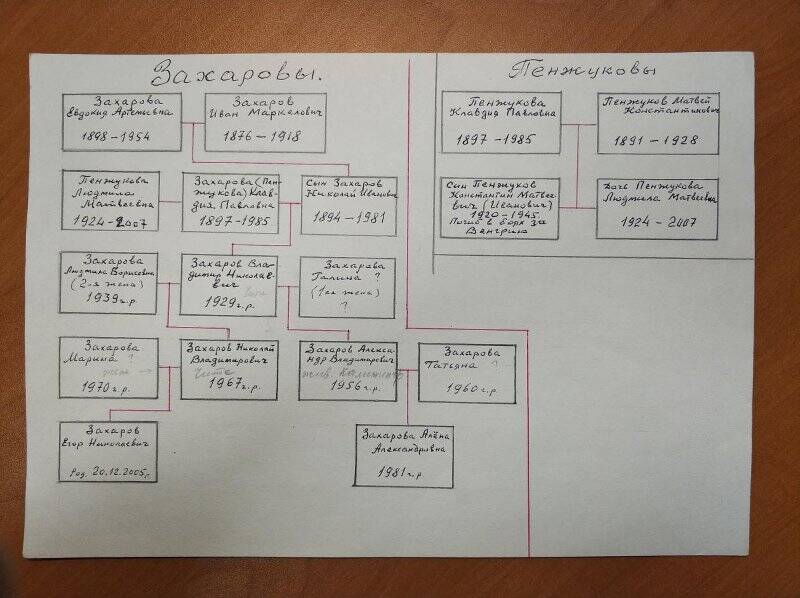 Захаровы.
Пенжуковы
Захарова
Евдокия Артемьевна
1898 – 1954
Захаров
Иван Маркелович
1876 – 1918
Пенжукова
Клавдия Павловна
1897 – 1985
Пенжуков Матвей
Константинович
1891 – 1928
Пенжукова
Людмила
Матвеевна
1924 – 2007
Захарова (Пен-
жукова) Клав-
дия Павловна
1897 – 1985
Сын Захаров
Николай Иванович
1894 – 1981
Сын Пенжуков
Константин Матве-
евич (Иванович)
1920 – 1945
Погиб в боях за
Венгрию
Дочь Пенжукова
Людмила Матвеевна
1924 – 2007
Захарова
Людмила Борисовна
(2-ая жена)
1939 г.р.
Захаров Вла-
димир Николае-
вич
1929 г.р.
Захарова
Галина ?
(1ая жена)
?
Захарова
Марина ?
1970 г.р.
Захаров Николай
Владимирович
Чита
1967 г.р.
Захаров Алекса-
ндр Владимирович
1956 г.р.
Захарова
Татьяна ?
1960 г.р.
Захаров
Егор Николаевич
Род. 20.12.2005 г.
Захарова Алёна
Александровна
1981 г.р